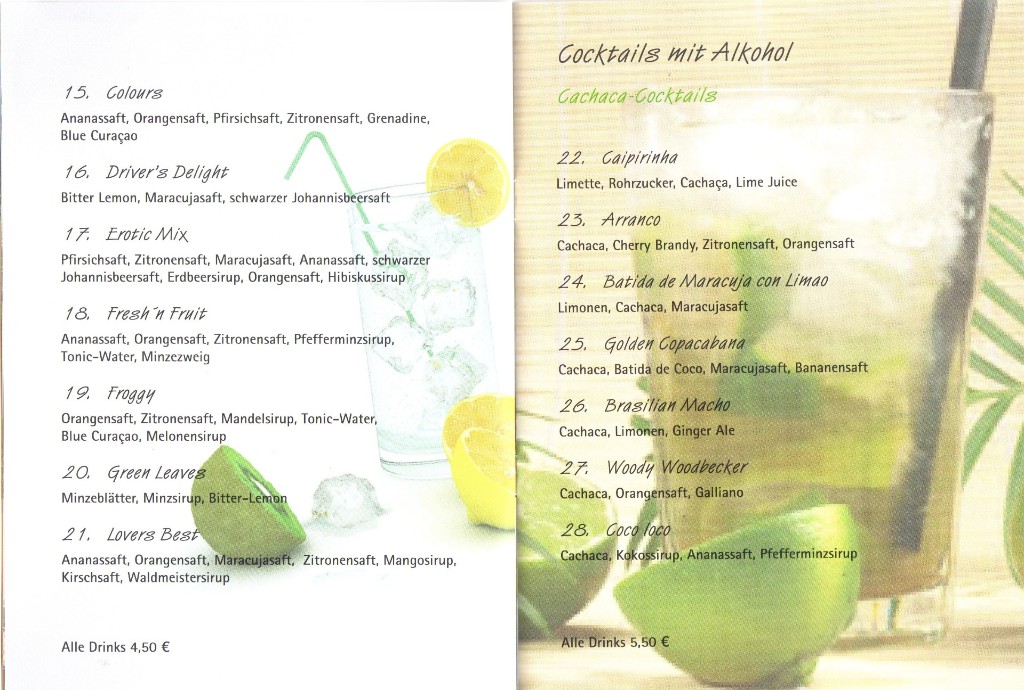 15. Colours
Ananassaft, Orangensaft, Pfirsichsaft, Zitronensaft, Grenadine,
Blue Curaçao
16. Driver's Delight
Bitter Lemon, Maracujasaft, schwarzer Johannisbeersaft
17. Erotic Mix
Pfirsichsaft, Zitronensaft, Maracujasaft, Ananassaft, schwarzer
Johannisbeersaft, Erdbeersirup, Orangensaft, Hibiskussirup
18. Fresh´n Fruit
Ananassaft, Orangensaft, Zitronensaft, Pfefferminzsirup,
Tonic-Water, Minzezweig
19. Froggy
Orangensaft, Zitronensaft, Mandelsirup, Tonic-Water,
Blue Curaçao, Melonensirup
20. Green Leaves
Minzeblätter, Minzsirup, Bitter-Lemon
21. Lovers Best
Ananassaft, Orangensaft, Maracujasaft, Zitronensaft, Mangosirup,
Kirschsaft, Waldmeistersirup
Alle Drinks 4,50 €
Cocktails mit Alkohol
Cachaca-Cocktails
22. Caipirinha
Limette, Rohrzucker, Cachaça, Lime Juice
23. Arranco
Cachaca, Cherry Brandy, Zitronensaft, Orangensaft
24. Batida de Maracuja con Limao
Limonen, Cachaca, Maracujasaft
25. Golden Copacabana
Cachaca, Batida de Coco, Maracujasaft, Bananensaft
26. Brasilian Macho
Cachaca, Limonen, Ginger Ale
27. Woody Woodbecker
Cachaca, Orangensaft, Galliano
28. Coco loco
Cachaca, Kokossirup, Ananassaft, Pfefferminzsirup
Alle Drinks 5,50 €